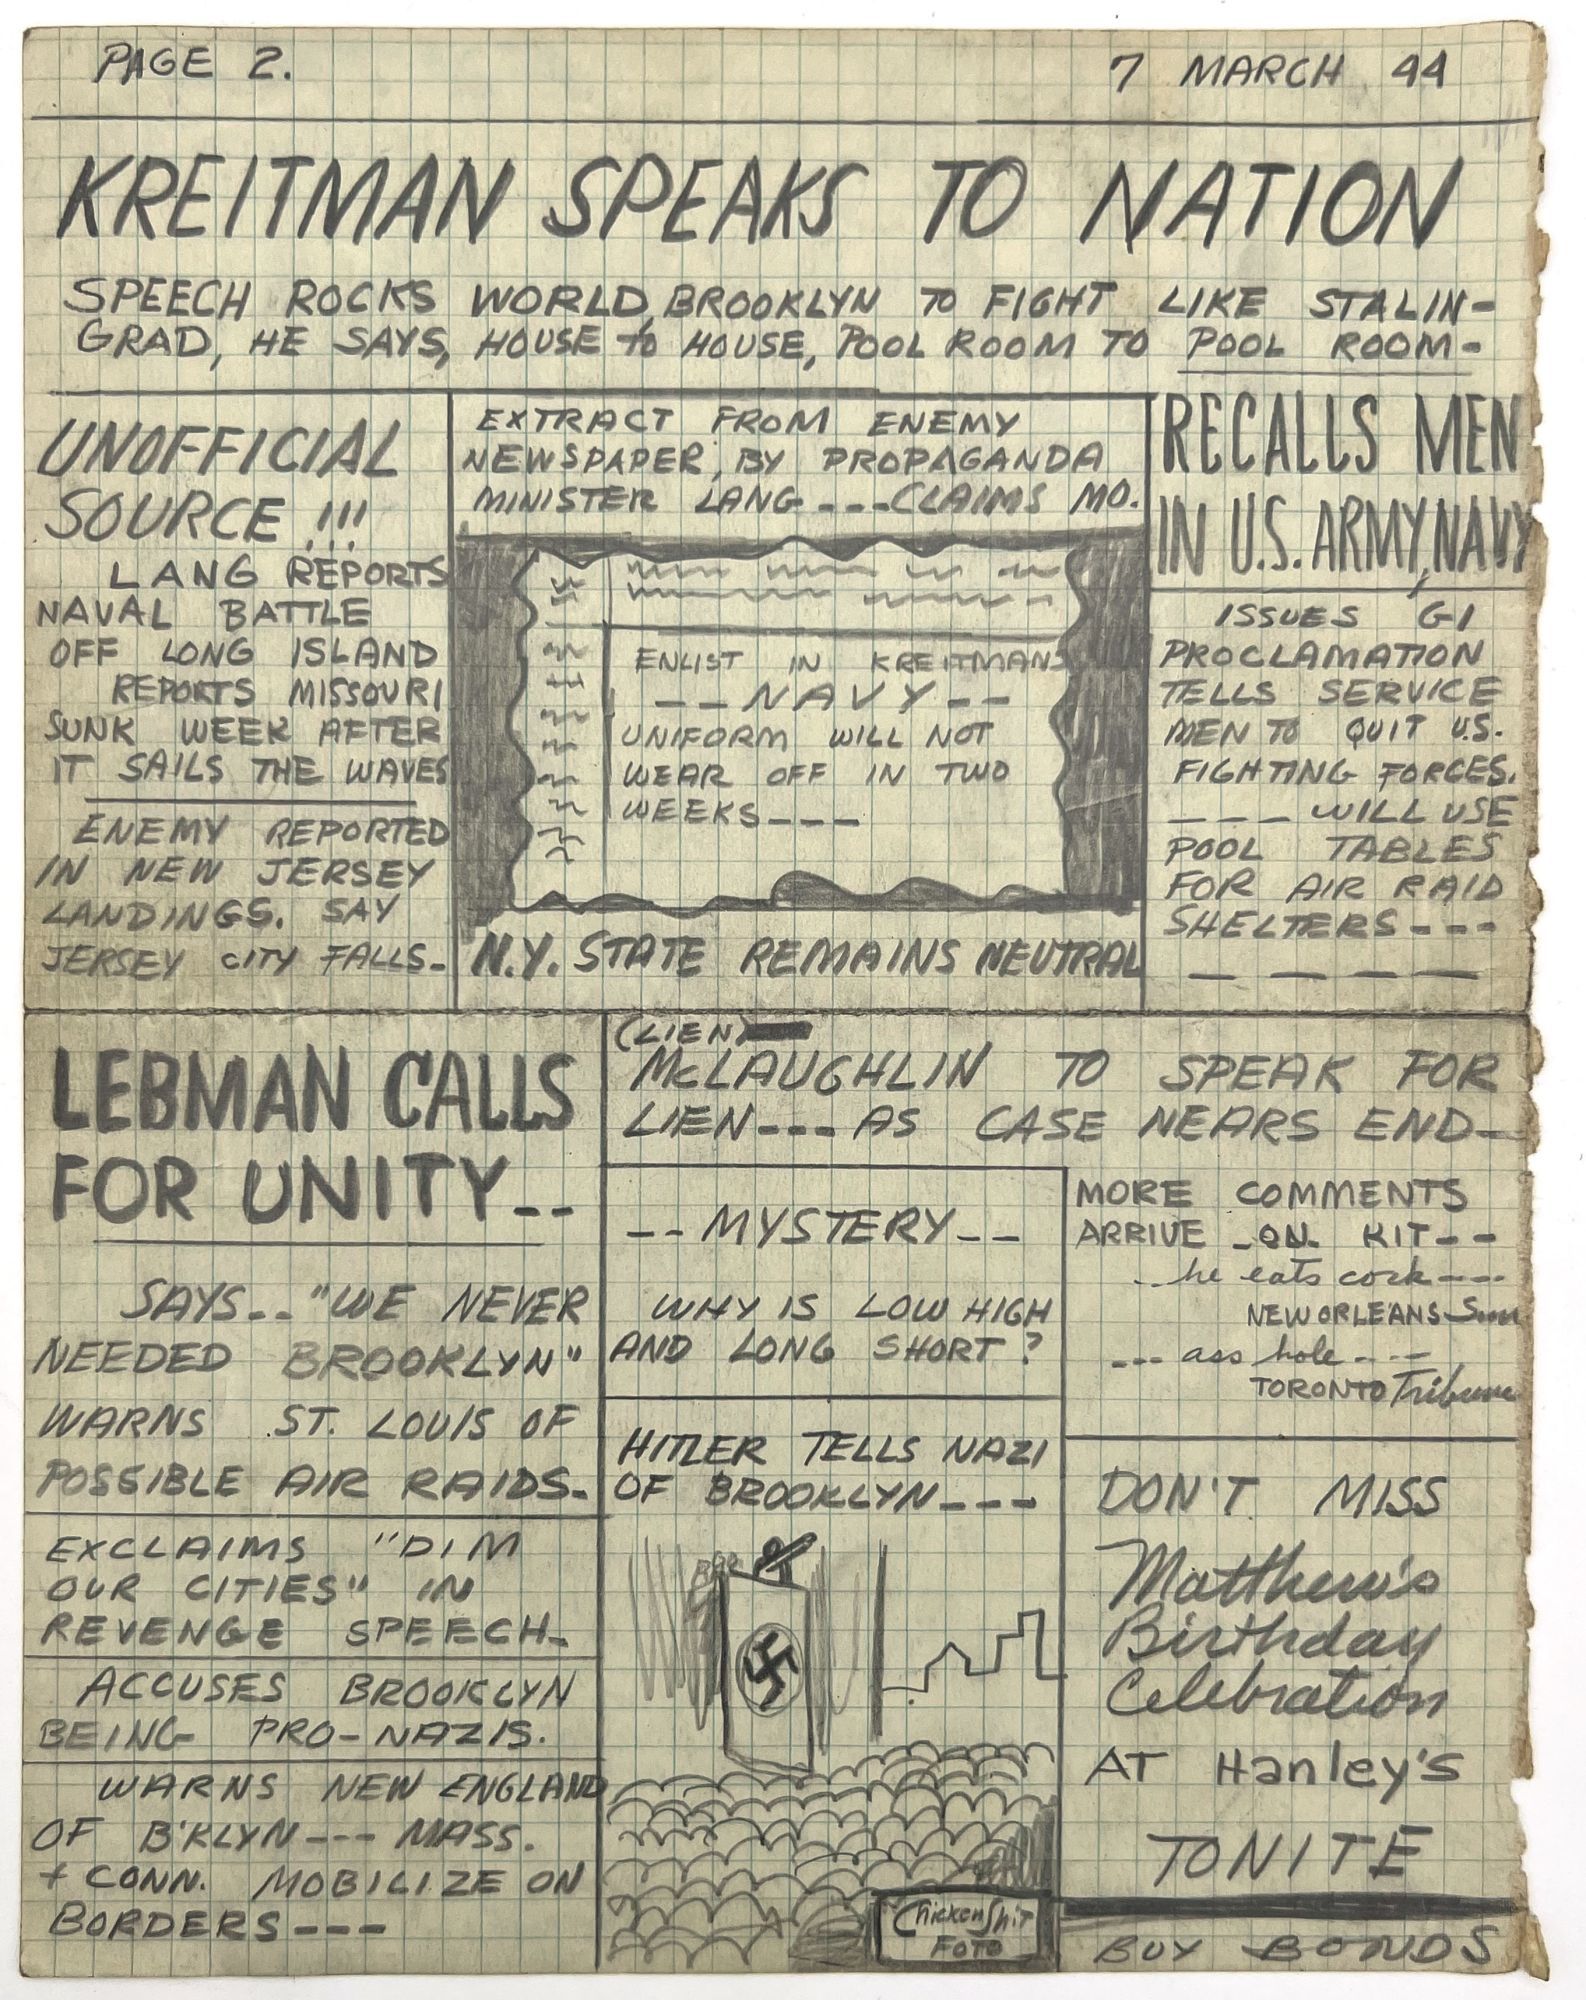 PAGE 2.
7 MARCH 44
KREITMAN SPEAKS TO NATION
SPEECH ROCKS WORLD, BROOKLYN TO FIGHT LIKE STALIN-
GRAD, HE SAYS, HOUSE to HOUSE, POOL ROOM TO POOL ROOM-
UNOFFICIAL
SOURCE !!!
LANG REPORTS
NAVAL BATTLE
OFF LONG ISLAND
REPORTS MISSOURI
SUNK WEEK AFTER
IT SAILS THE WAVES
ENEMY REPORTED
IN NEW JERSEY
LANDINGS. SAY
JERSEY CITY FALLS-
EXTRACT FROM ENEMY
NEWSPAPER, BY PROPAGANDA
MINISTER LANG---CLAIMS MO.
ENLIST IN KREITMANS
--NAVY--
UNIFORM WILL NOT
WEAR OFF IN TWO
WEEKS---
N.Y. STATE REMAINS NEUTRAL
RECALLS MEN
IN U.S. ARMY, NAVY
ISSUES GI
PROCLAMATION
TELLS SERVICE
MEN TO QUIT U.S.
FIGHTING FORCES.
--- WILL USE
POOL TABLES
FOR AIR RAID
SHELTERS---
- - - -
LEBMAN CALLS
FOR UNITY--
SAYS-- "WE NEVER
NEEDED BROOKLYN"
WARNS ST. LOUIS OF
POSSIBLE AIR RAIDS-
EXCLAIMS "DIM
OUR CITIES" IN
REVENGE SPEECH-
ACCUSES BROOKLYN
BEING PRO-NAZIS.
WARNS NEW ENGLAND
OF B'KLYN--- MASS.
+ CONN. MOBILIZE ON
BORDERS---
(LIEN)
McLAUGHLIN TO SPEAK FOR
LIEN---AS CASE NEARS END-
--MYSTERY--
WHY IS LOW HIGH
AND LONG SHORT?
HITLER TELLS NAZI
OF BROOKLYN---
BAR
ChickenShit
FOTO
MORE COMMENTS
ARRIVE -ON- KIT--
--he eats cock----
NEW ORLEANS Sun
--- ass hole----
TORONTO Tribune
DON'T MISS
Matthew's
Birthday
Celebration
AT Hanley's
TONITE
BUY BONDS